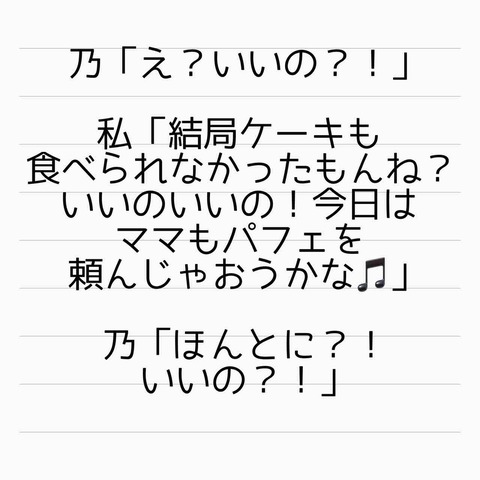 乃「え？いいの？！」
私「結局ケーキも
食べられなかったもんね？
いいのいいの！今日は
ママもパフェを
頼んじゃおうかな🎵」
乃「ほんとに？！
いいの？！」